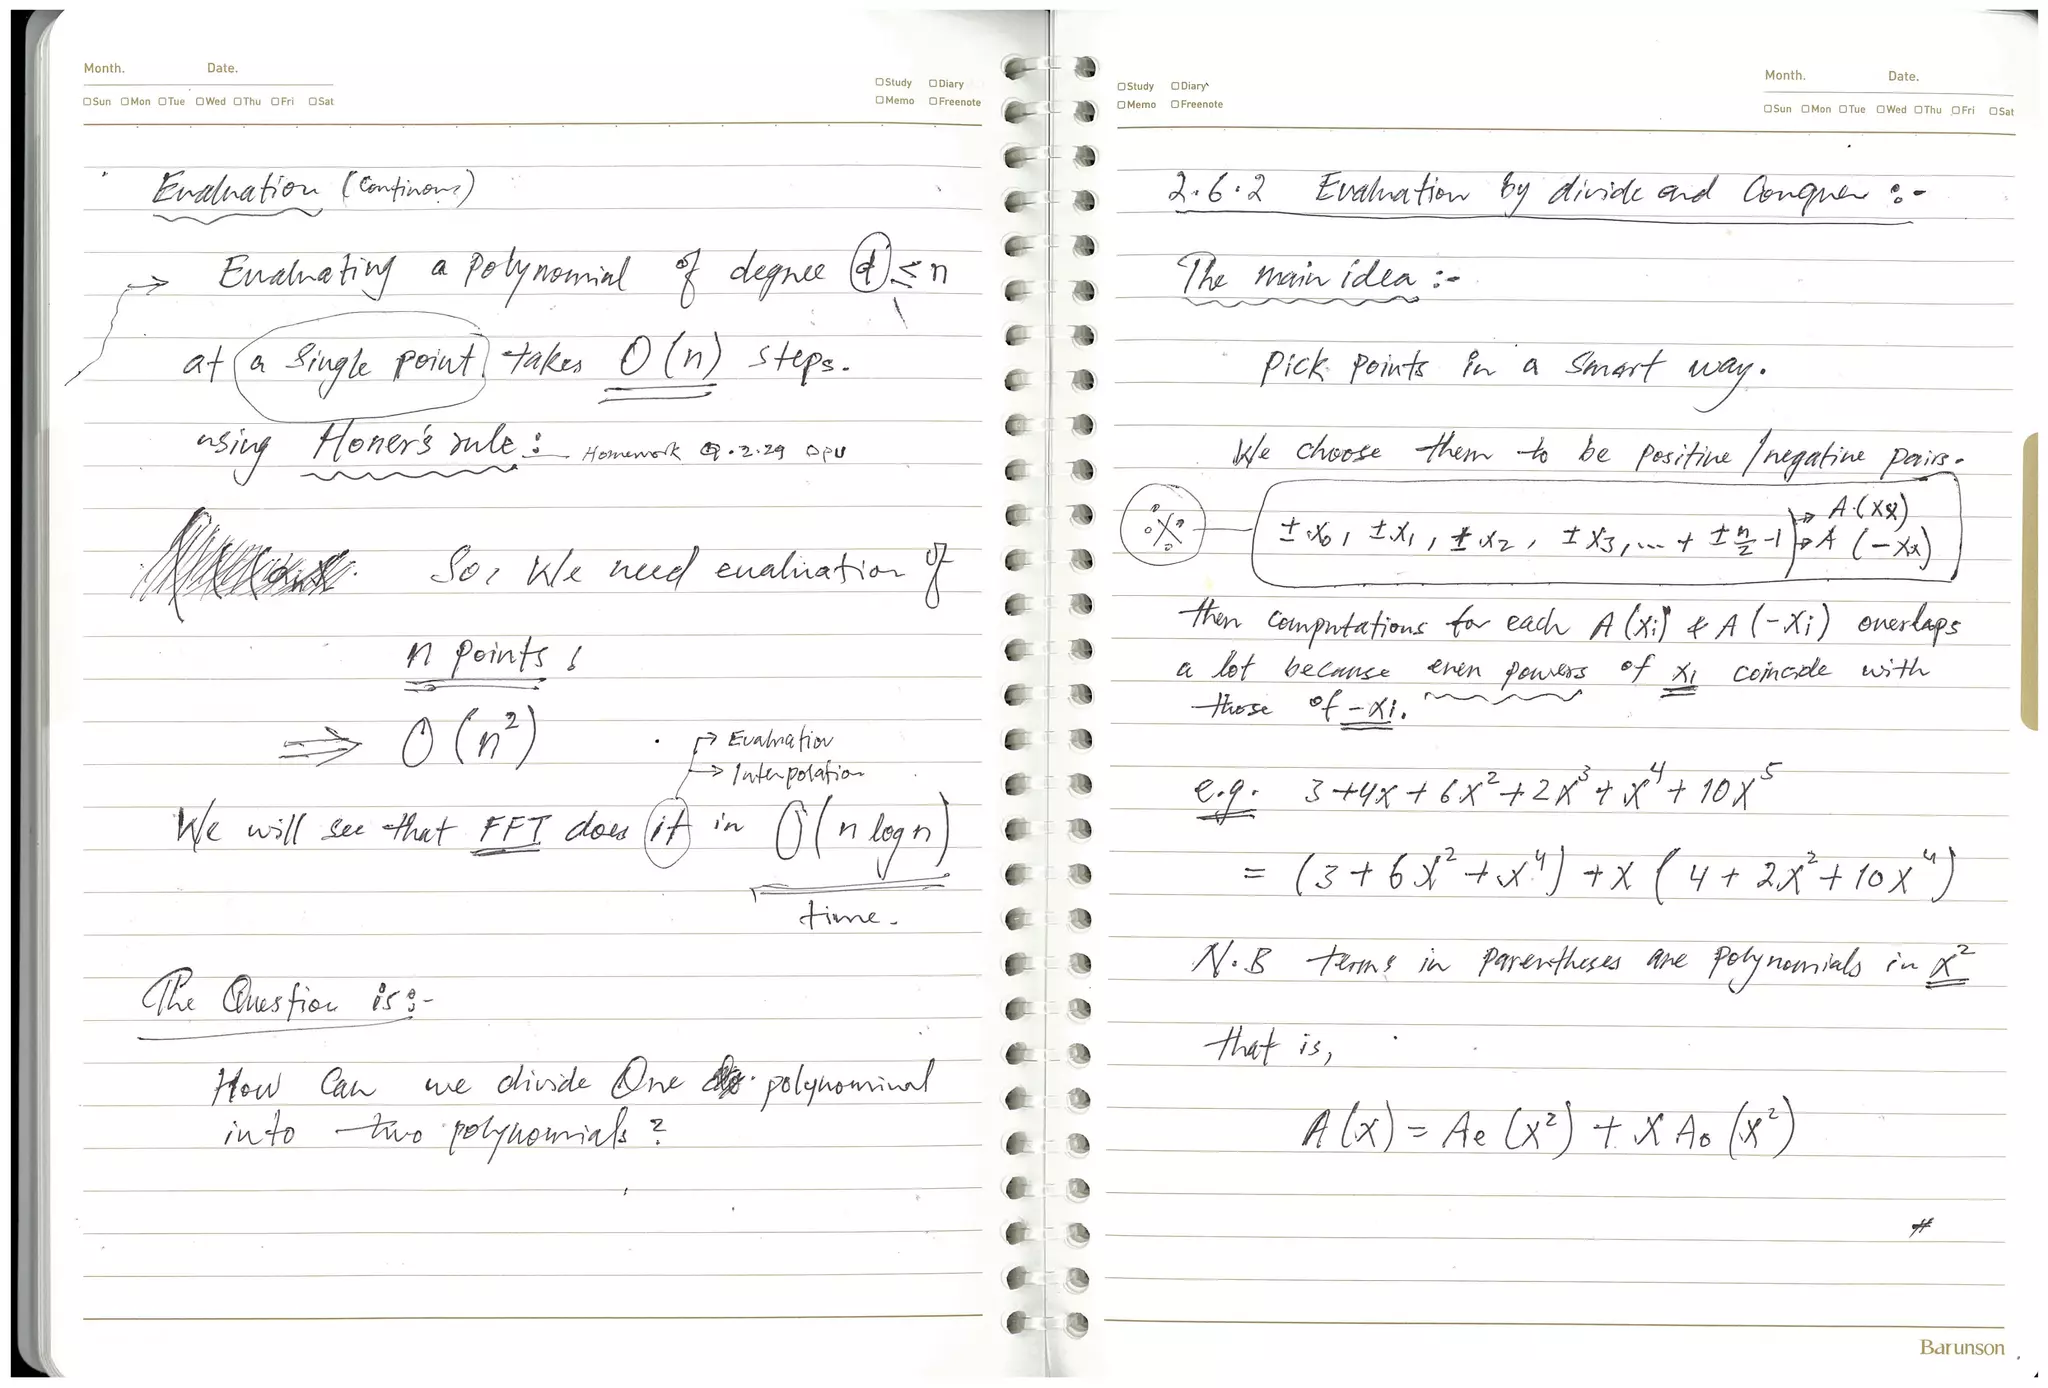 Month. Date.
Study Diary
Sun Mon Tue Wed Thu Fri Sat
Memo Freenote
Evaluation (Continous)
→ Evaluating a polynomial of degree d ≤ n
at a single point takes O(n) steps.
using Honer's rule :- Homework Q.2.29 DPV
So, We need evaluation of
n points,
⇒ O(n²)
→ Evaluation
→ Interpolation
We will see that FFT does it in O(n log n)
time.
The Question is :-
How Can we divide One polynominal
into two polynomials?
Study Diary
Memo Freenote
Month. Date.
Sun Mon Tue Wed Thu Fri Sat
2.6.2 Evaluation by divide and Conquer :-
The main idea :-
Pick points in a smart way.
We choose them to be positive/negative pairs.
± x₀, ± x₁, ± x₂, ± x₃, ... + ± n/2 -1
→ A(x
→ A (-x
then computations for each A(xi) & A(-xi) overlaps
a lot because even powers of xi coincide with
those of -xi.
e.g. 3+4x+6x²+2x³+x⁴+10x⁵
= (3+6x²+x⁴)+x(4+2x²+10x⁴)
N.B terms in parentheses are polynomials in x²
that is,
A(x) = Ae(x²) + x Ao(x²)
#
Barunson